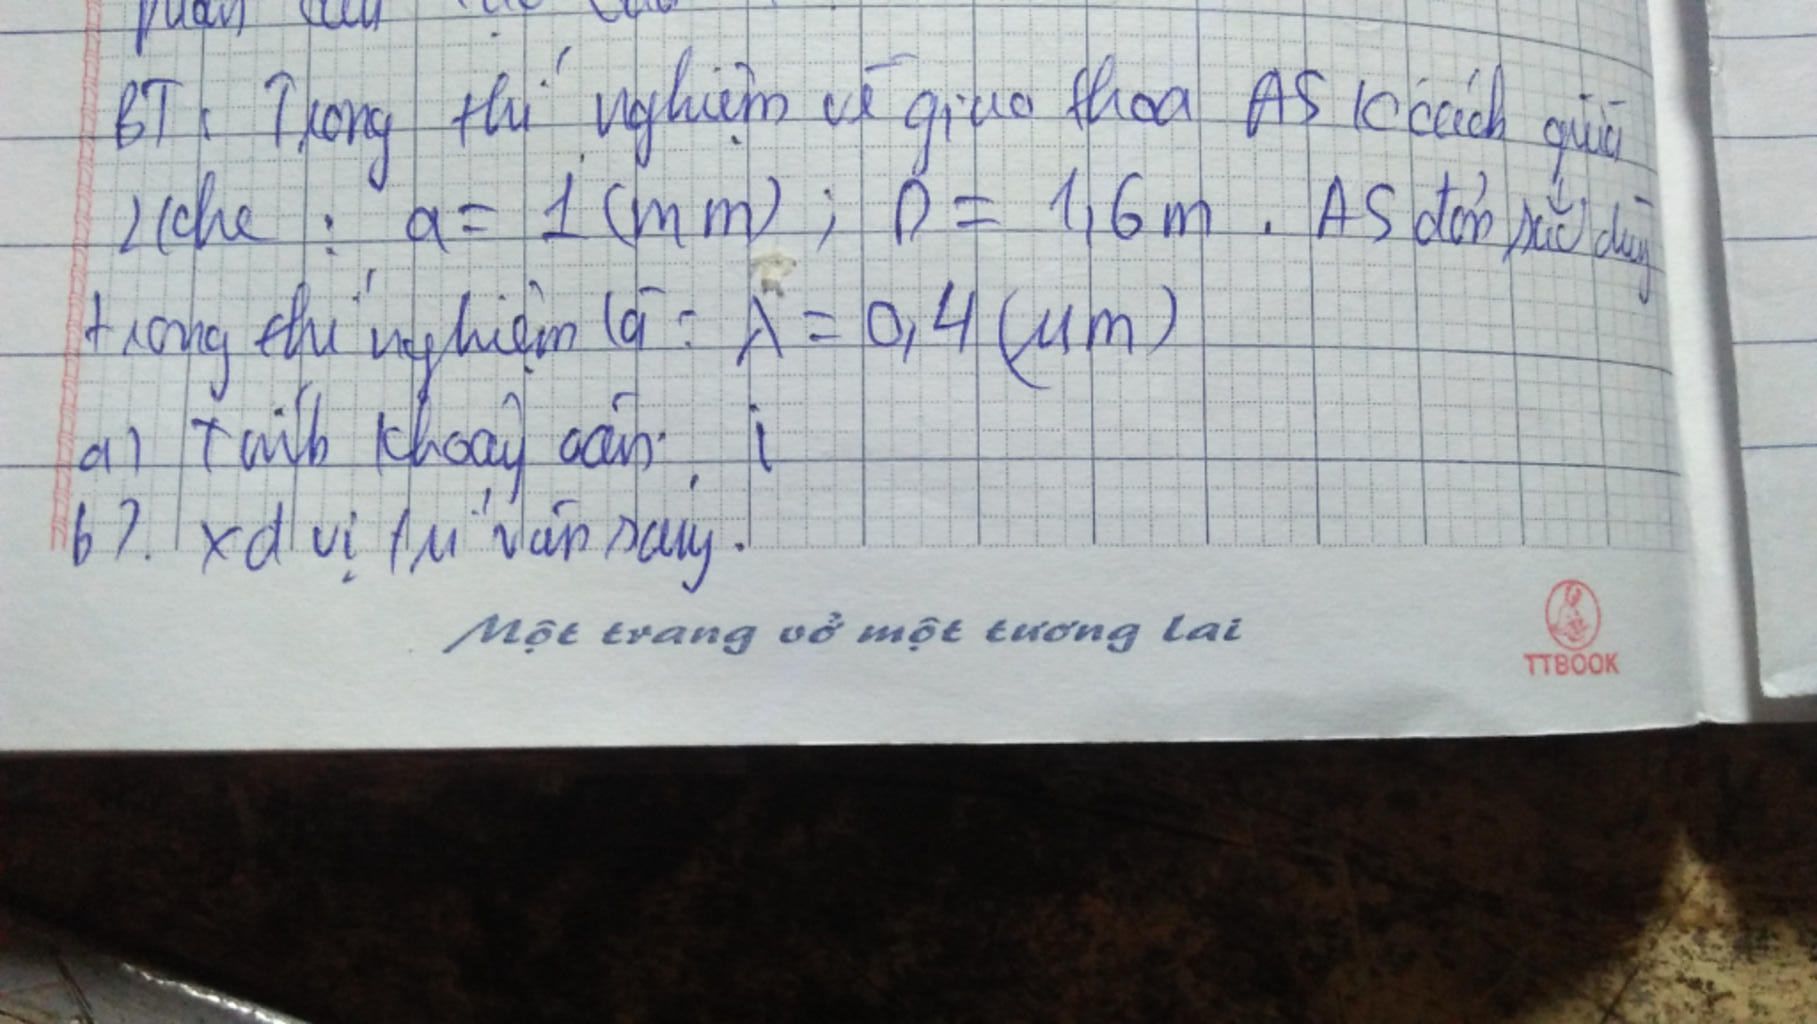 BT: Trong thí nghiệm về giao thoa AS K/cách giữa
2 khe : a = 1 (mm) ; D = 1,6m . AS đơn sắc dùng
trong thí nghiệm là : λ = 0,4 (μm)
a) Tính khoảng vân i
b). xđ vị trí vân sáng.
Một trang vở một tương lai
TTBOOK